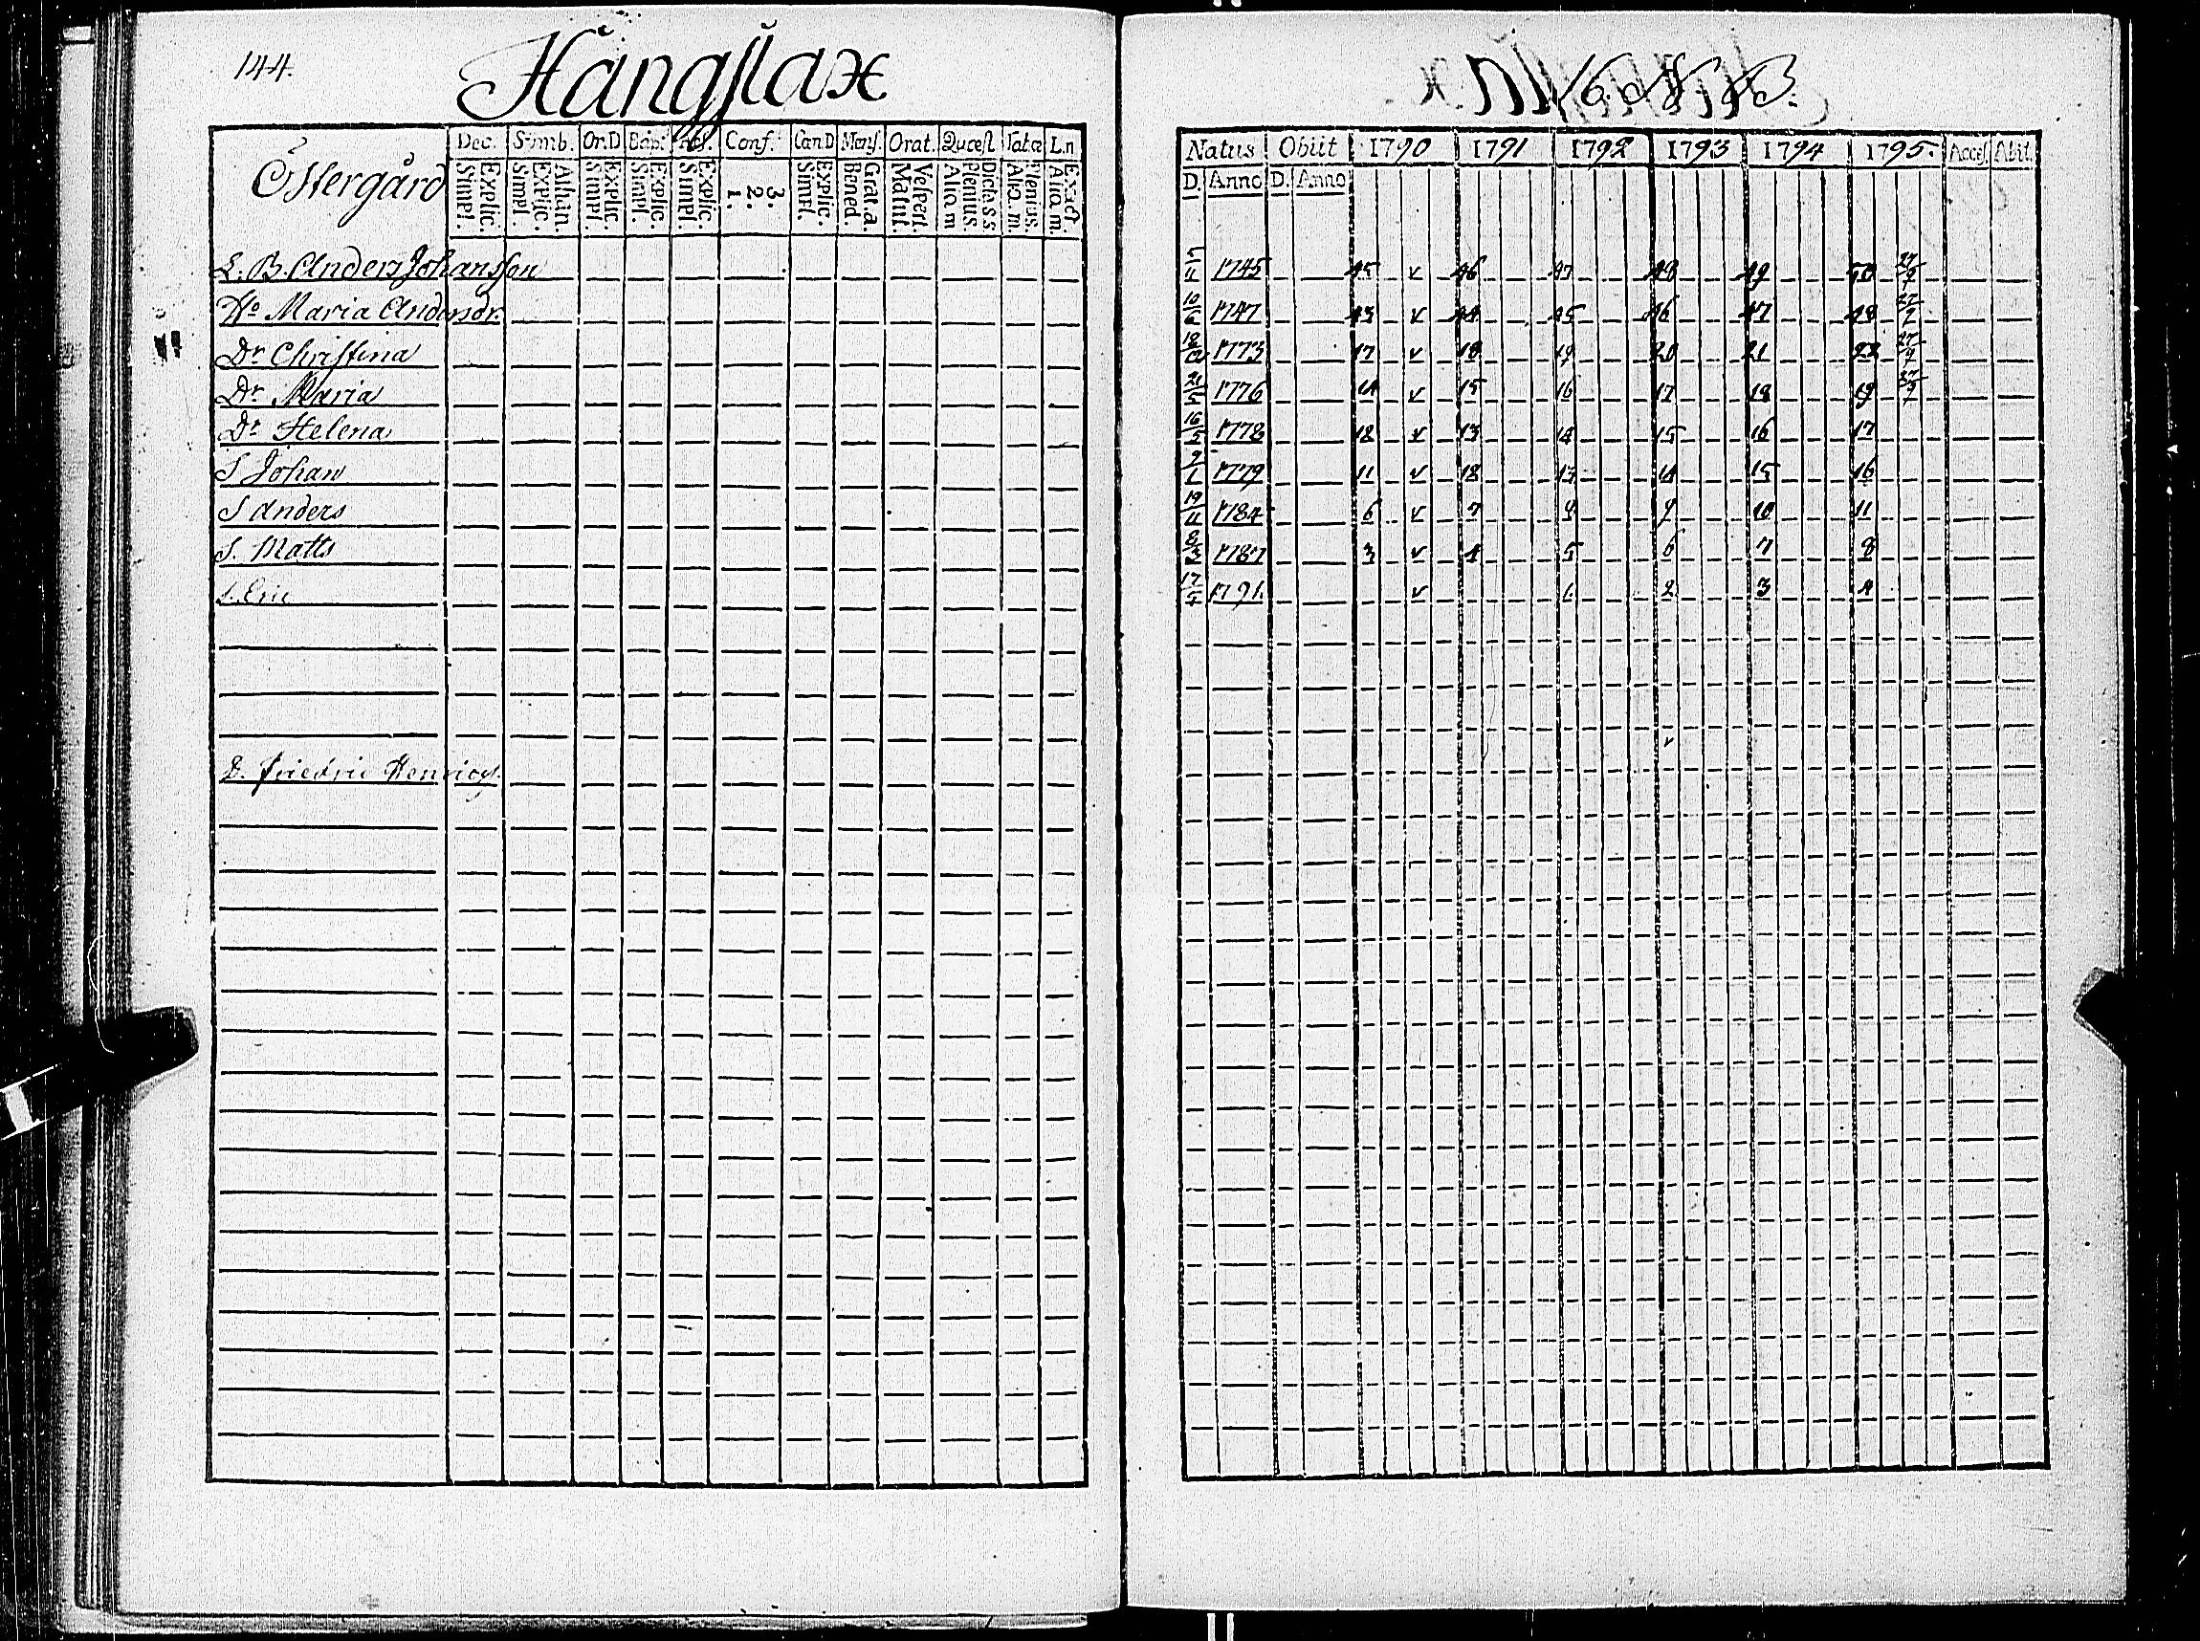 144.
Hångslax
N 16. N. B.
Östergård
Dec. Simb. Or.D Bapt. Abs. Conf. Can D Mens. Orat. Quæst Tatæ L.n
Simpl. Explic. Simpl. Explic. Athan. Simpl. Explic. Simpl. Explic. Simpl. Explic. 1. 2. 3. Simpl. Explic. Bened. Grat.a. Matut. Vespert. Aliq m Plenius. Dicta S S Aliq. m. Plenius. Aliq m. Exact.
Natus Obiit 1790 1791 1792 1793 1794 1795. Acces. Abit.
D. Anno D. Anno
L. B. Anders Johansson 5/11 1745 45 v 46 47 48 49 50 27/9
Ho Maria Andersdr. 10/2 1747 43 v 44 45 46 47 48 27/9
Dr Christina 18/12 1773 17 v 18 19 20 21 22 27/9
Dr Maria 21/5 1776 14 v 15 16 17 18 19 27/9
Dr Helena 16/5 1778 12 v 13 14 15 16 17
S Johan 9/1 1779 11 v 12 13 14 15 16
S Anders 19/11 1784 6 v 7 8 9 10 11
S. Matts 8/3 1787 3 v 4 5 6 7 8
S. Eric 17/4 1791. v 1. 2 3 4
v
D. Friedric Henrics.